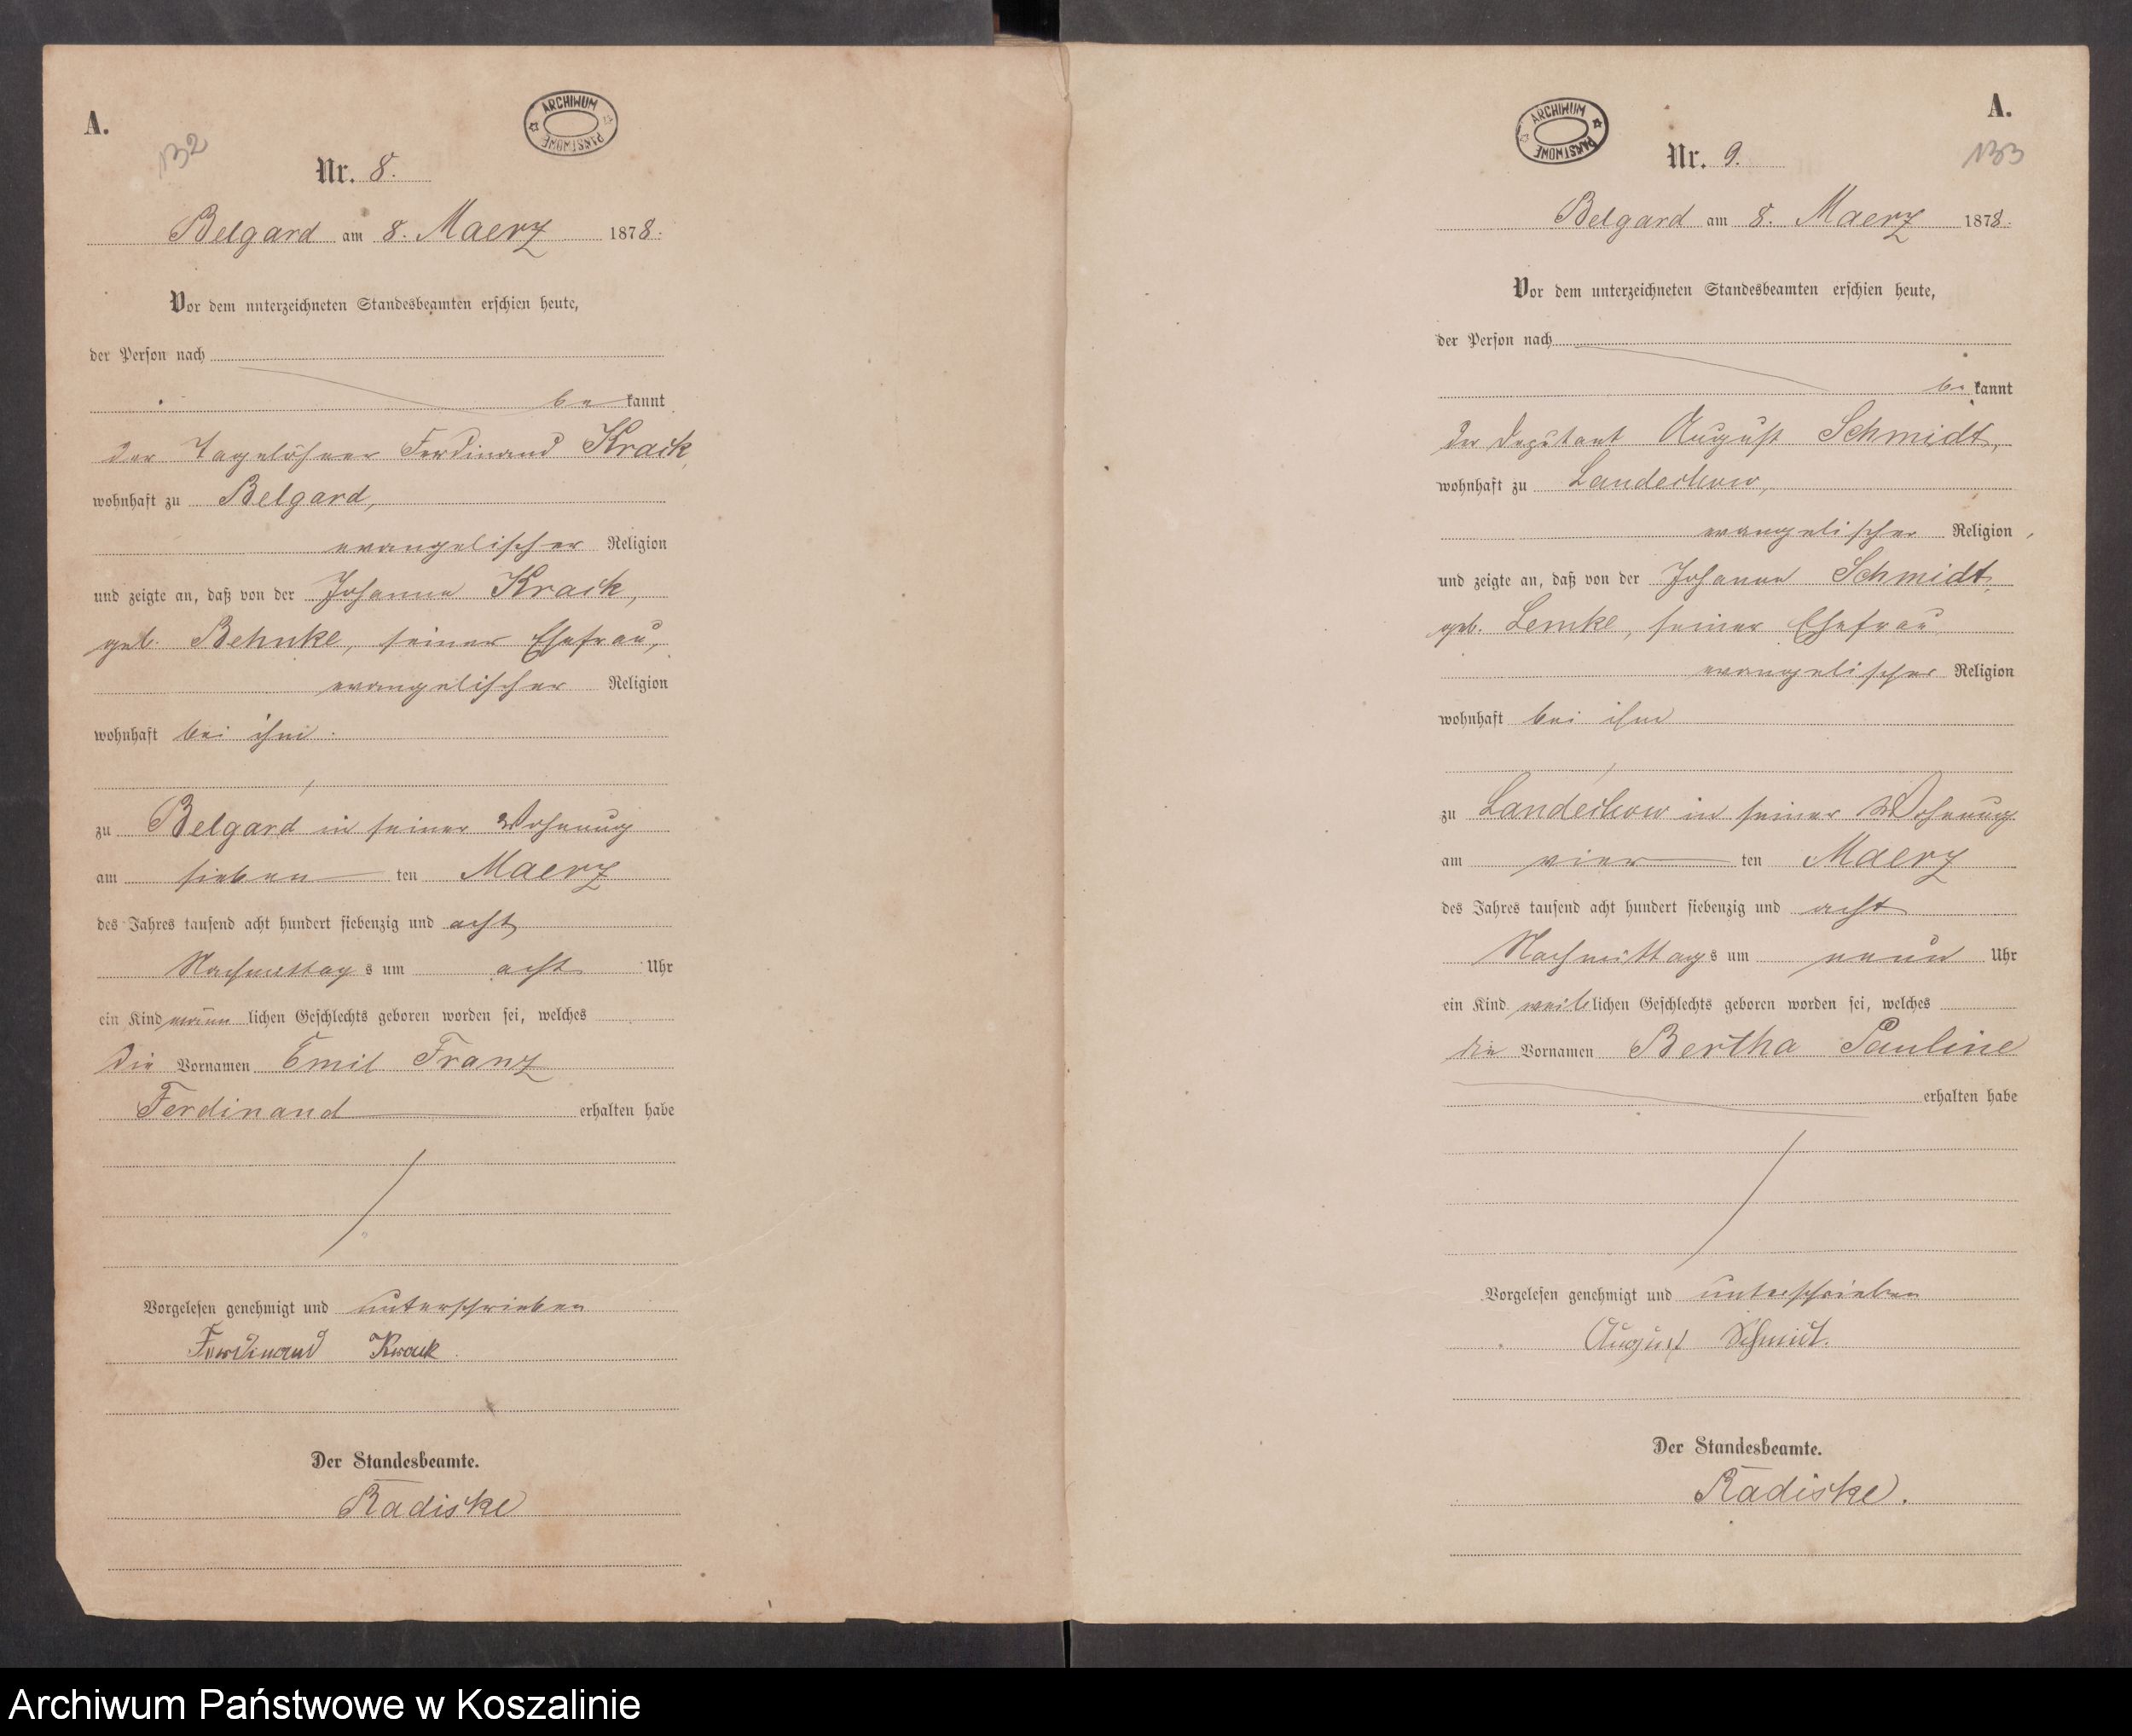 A.
132
ARCHIWUM PAŃSTWOWE
Nr. 8.
Belgard am 8. Maerz 1878.
Vor dem unterzeichneten Standesbeamten erschien heute,
der Person nach
be kannt
der Tagelöhner Ferdinand Krack,
wohnhaft zu Belgard,
evangelischer Religion
und zeigte an, daß von der Johanne Krack,
geb. Behnke, seiner Ehefrau,
evangelischer Religion
wohnhaft bei ihm
zu Belgard in seiner Wohnung
am sieben ten Maerz
des Jahres tausend acht hundert siebenzig und acht
Nachmittag s um acht Uhr
ein Kind männ lichen Geschlechts geboren worden sei, welches
die Vornamen Emil Franz
Ferdinand erhalten habe
Vorgelesen genehmigt und unterschrieben
Ferdinand Krack
Der Standesbeamte.
Radiske
A.
133
ARCHIWUM PAŃSTWOWE
Nr. 9.
Belgard am 8. Maerz 1878.
Vor dem unterzeichneten Standesbeamten erschien heute,
der Person nach
be kannt
der Deputant August Schmidt,
wohnhaft zu Landechow,
evangelischer Religion
und zeigte an, daß von der Johanne Schmidt,
geb. Lemke, seiner Ehefrau
evangelischer Religion
wohnhaft bei ihm
zu Landechow in seiner Wohnung
am vier ten Maerz
des Jahres tausend acht hundert siebenzig und acht
Nachmittag s um neun Uhr
ein Kind weib lichen Geschlechts geboren worden sei, welches
die Vornamen Bertha Pauline
erhalten habe
Vorgelesen genehmigt und unterschrieben
August Schmidt.
Der Standesbeamte.
Radiske.
Archiwum Państwowe w Koszalinie